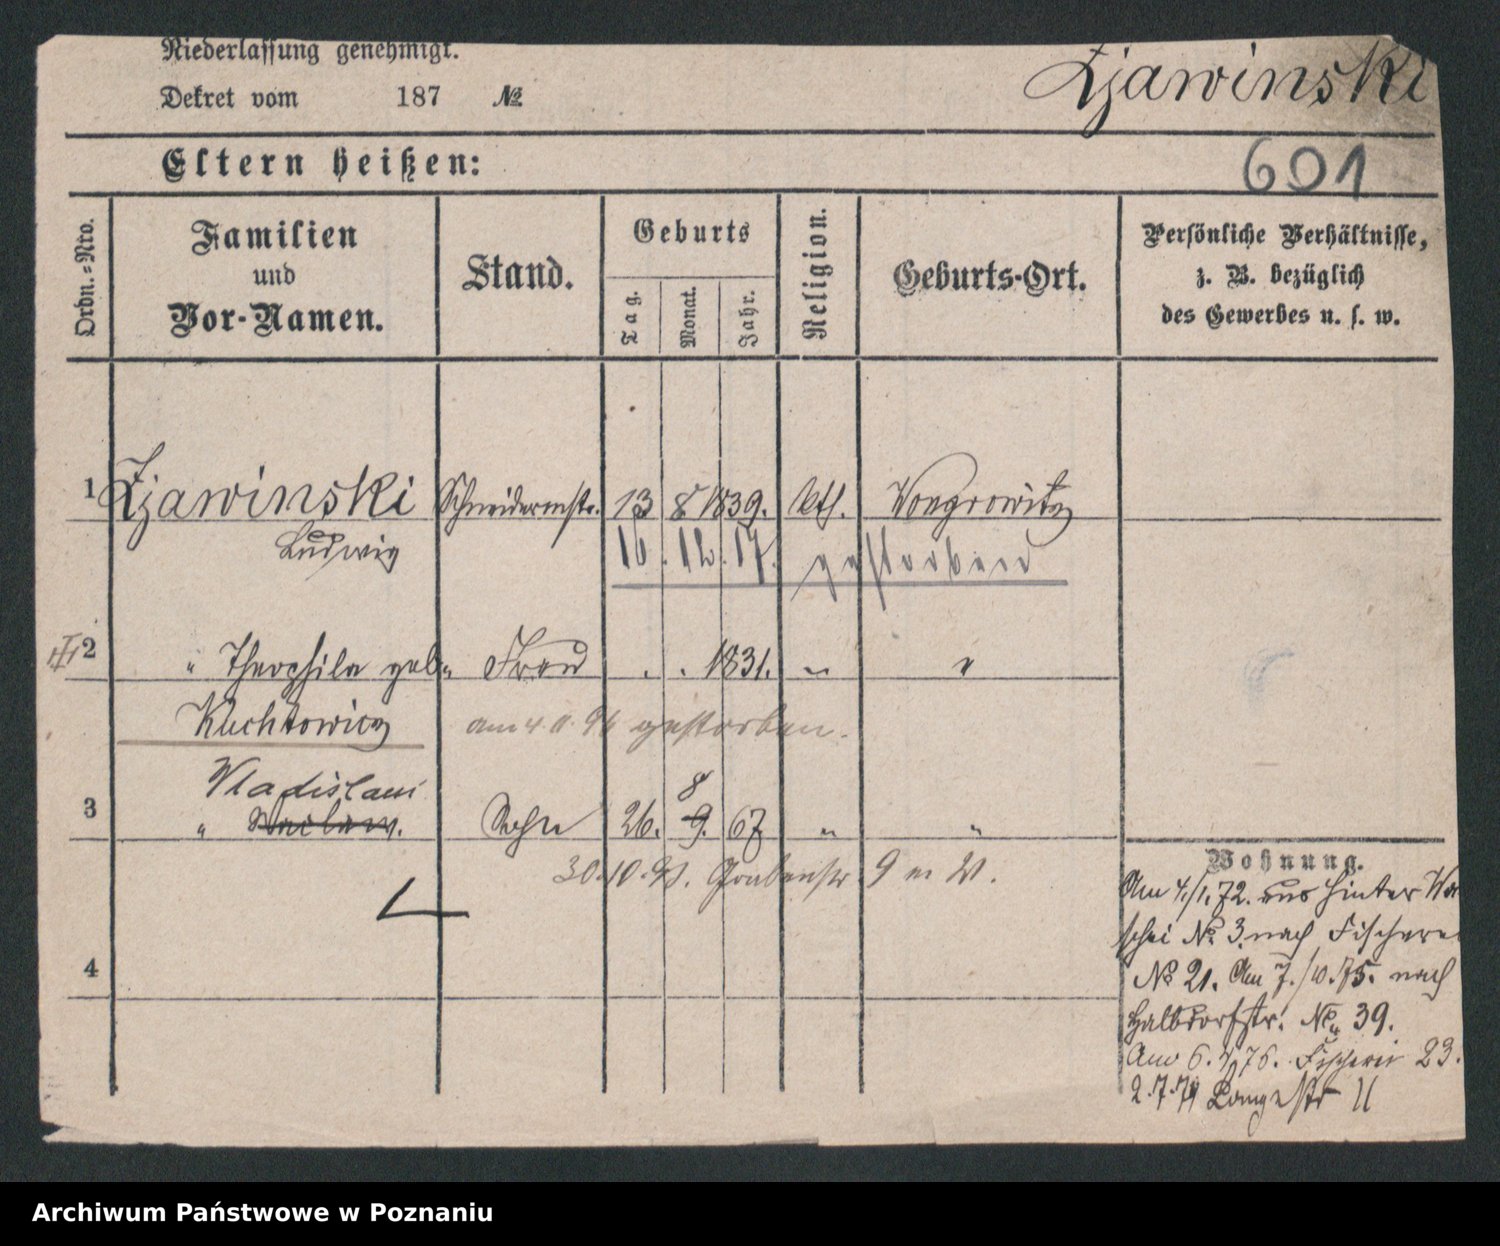 Niederlassung genehmigt.
Dekret vom 187 №
Zjawinski
Eltern heißen:
601
Ordn.=Nro.
Familien
und
Vor-Namen.
Stand.
Geburts
Tag.
Monat.
Jahr.
Religion.
Geburts-Ort.
Persönliche Verhältnisse,
z. B. bezüglich
des Gewerbes u. s. w.
1 Zjawinski Schneidermstr. 13 8 1839. kth. Wongrowitz
Ludwig
16. 12. 17. gestorben
2 " Theophila geb. Frau . . 1831. " "
Kuchtowicz am 4. 11. 94 gestorben.
Wladislaus 8
3 " Waclaw. Sohn 26. 9. 67 " "
30.10.93. Grabenstr 9
4
Wohnung.
Am 4/1.72. aus Hinter Wal
schei № 3 nach Fischerei
№ 21. Am 7./10.75. nach
Halbdorfstr. № 39.
Am 6. 76. Fischerei 23.
2.7.79 Langestr 11
Archiwum Państwowe w Poznaniu